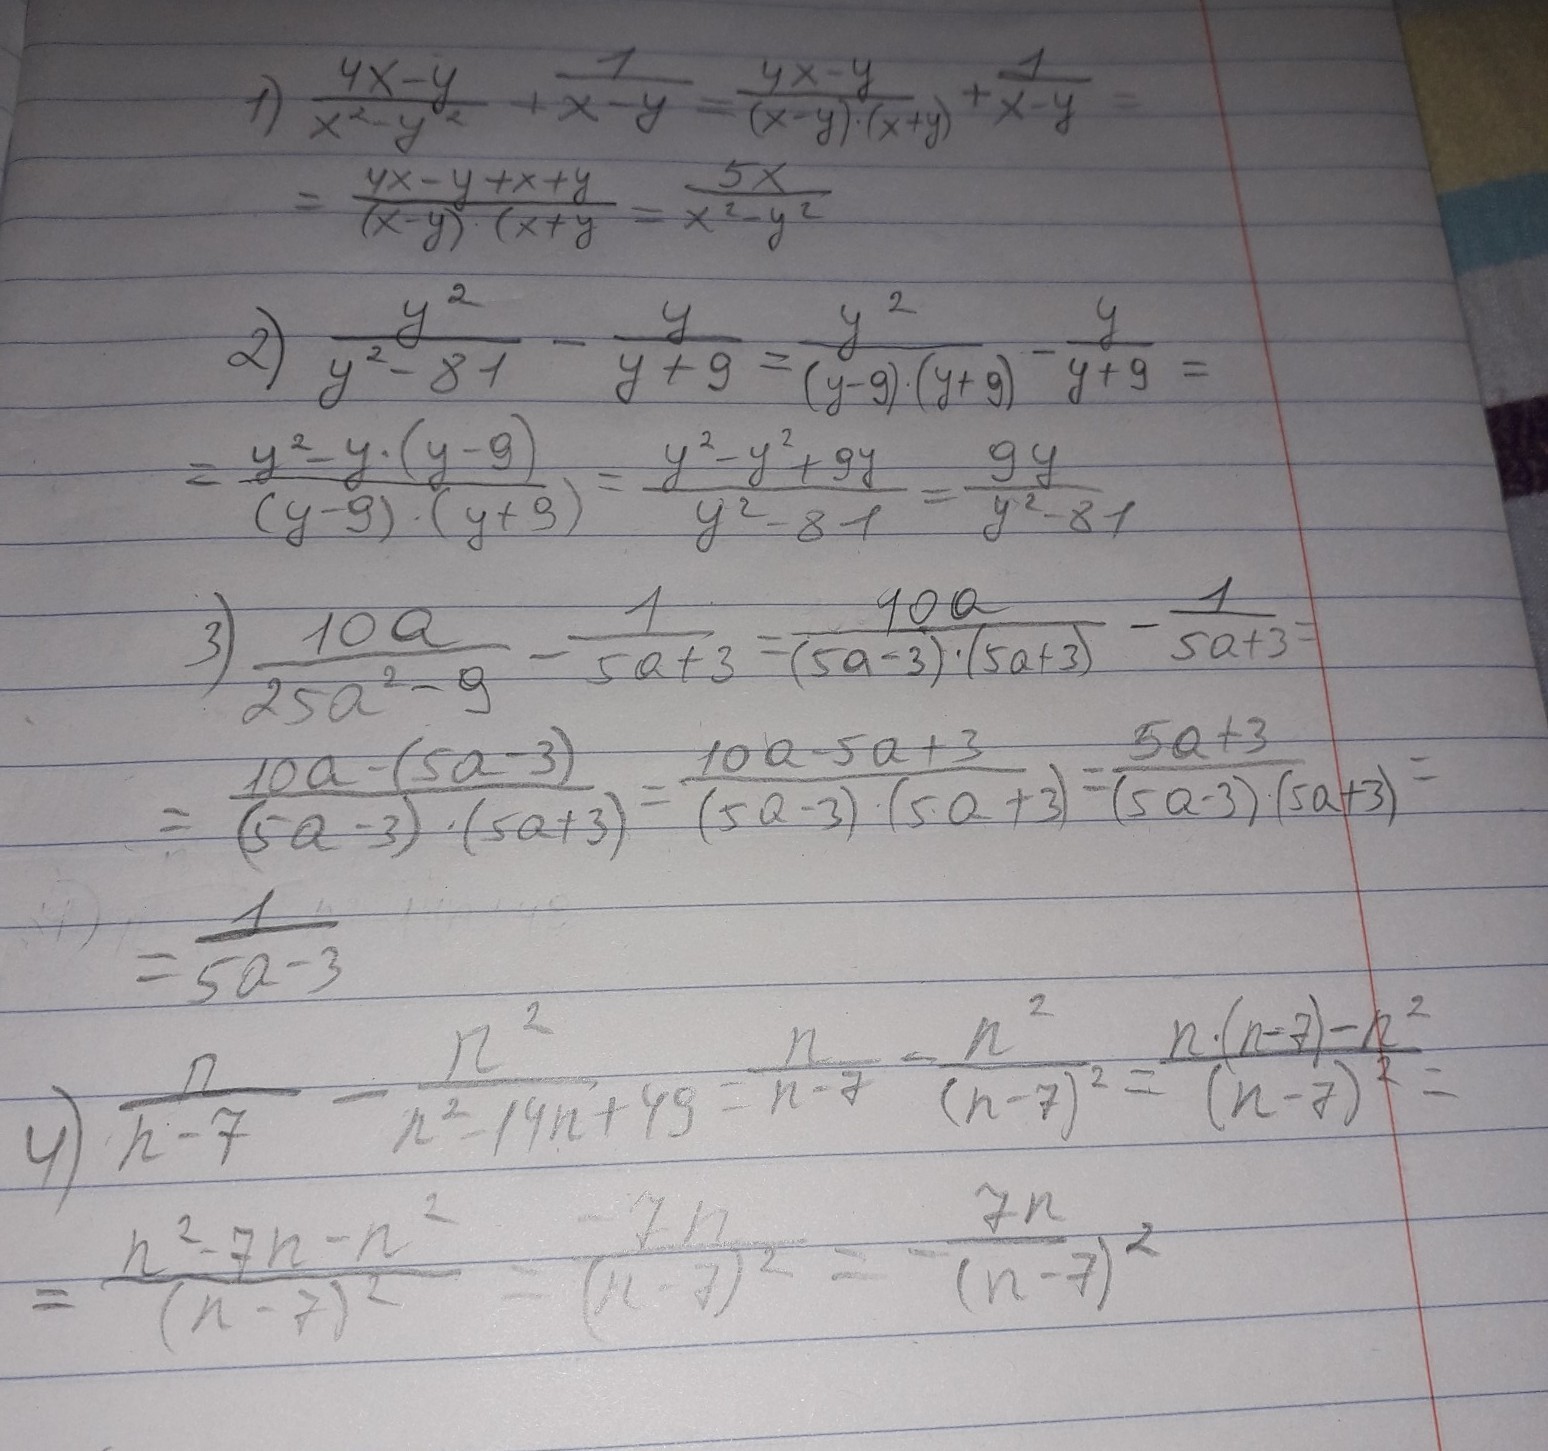 1) (4x-y)/(x²-y²) + 1/(x-y) = (4x-y)/((x-y)·(x+y)) + 1/(x-y) =
= (4x-y+x+y)/((x-y)·(x+y = 5x/(x²-y²)
2) y²/(y²-81) - y/(y+9) = y²/((y-9)·(y+9)) - y/(y+9) =
= (y²-y·(y-9))/((y-9)·(y+9)) = (y²-y²+9y)/(y²-81) = 9y/(y²-81)
3) 10a/(25a²-9) - 1/(5a+3) = 10a/((5a-3)·(5a+3)) - 1/(5a+3) =
= (10a-(5a-3))/((5a-3)·(5a+3)) = (10a-5a+3)/((5a-3)·(5a+3)) = (5a+3)/((5a-3)·(5a+3)) =
= 1/(5a-3)
4) n/(n-7) - n²/(n²-14n+49) = n/(n-7) - n²/(n-7)² = (n·(n-7)-n²)/(n-7)² =
= (n²-7n-n²)/(n-7)² = -7n/(n-7)² = -7n/(n-7)²